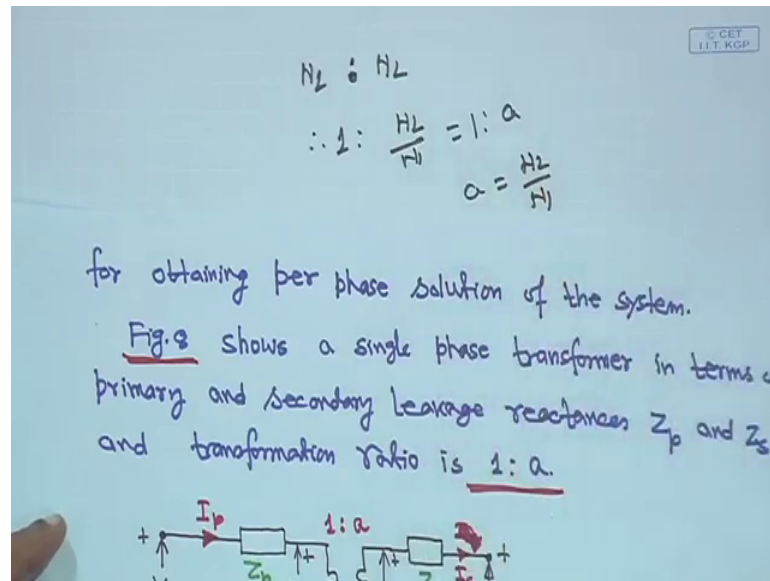 © CET
I.I.T. KGP
N2 : N2
∴ 1 : N2/N1 = 1 : a
a = N2/N1
for obtaining per phase solution of the system.
Fig.8 shows a single phase transformer in terms
primary and secondary leakage reactances Zp and Zs
and transformation ratio is 1 : a.
Ip 1 : a
+ + + +
Zp